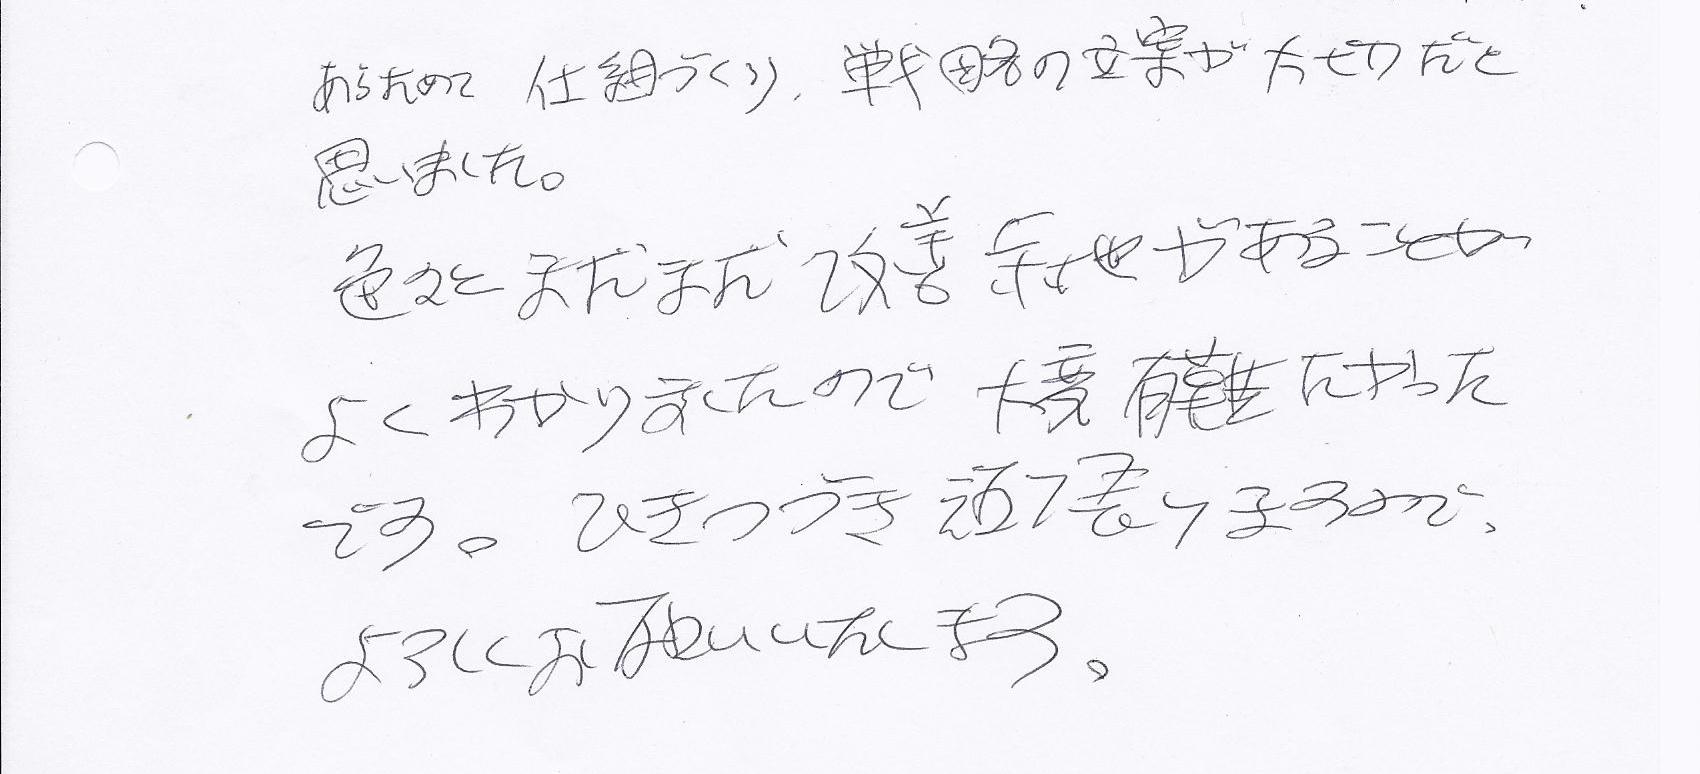 あらためて 仕組づくり、戦略の立案が大切だと
思いました。
色々とまだまだ改善余地があることが
よくわかりましたので大変有難たかった
です。ひきつづき頑張りますので、
よろしくお願いいたします。